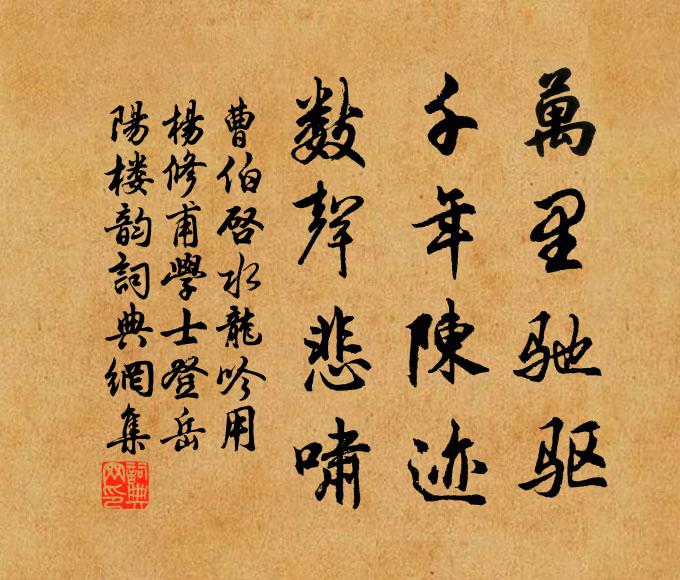 萬里驰驱
千年陳迹
數聲悲嘯
曹伯启水龍吟用
楊修甫學士登岳
陽楼韵詞典網集
詞典網印